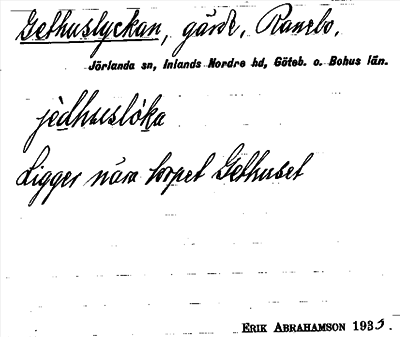 Gethuslyckan, gärde, Ranebo.
Jörlanda sn, Inlands Nordre hd, Göteb. o. Bohus län.
jèdhuslóka
Ligger nära torpet Gethuset
ERIK ABRAHAMSON 1933.